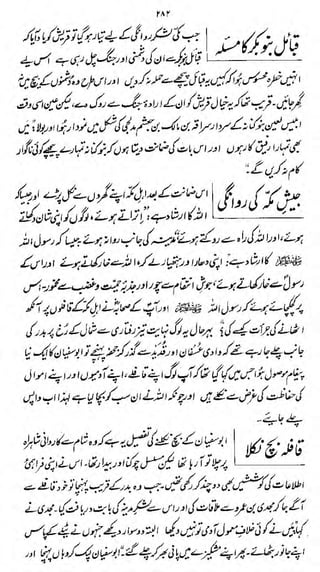 ۲۸۲
قبائل بنو بکر کا مسئلہ
جب مکی لشکر روانگی کے لیے تیار ہو گیا تو قریش کو یاد آیا کہ
قبائل بنو بکر سے ان کی دشمنی اور جنگ چل رہی ہے اس لیے
انہیں خطرہ محسوس ہوا کہ کہیں یہ قبائل پیچھے سے حملہ نہ کر دیں اور اس طرح وہ دشمنوں کے بیچ میں نہ
گھر جائیں۔ قریب تھا کہ یہ خیال قریش کو ان کے ارادۂ جنگ سے روک دے، لیکن عین اسی وقت
ابلیس لعین بنو کنانہ کے سردار سراقہ بن مالک بن جعشم مدلجی کی شکل میں نمودار ہوا اور بولا: "میں
بھی تمہارا رفیق کار ہوں اور اس بات کی ضمانت دیتا ہوں کہ بنو کنانہ تمہارے پیچھے کوئی ناگوار
کام نہ کریں گے۔"
جیش مکہ کی روانگی
اس ضمانت کے بعد اہل مکہ اپنے گھروں سے نکل پڑے اور جیسا کہ
اللہ کا ارشاد ہے: "اتراتے ہوئے، لوگوں کو اپنی شان دکھاتے
ہوئے، اور اللہ کی راہ سے روکتے ہوئے" مدینہ کی جانب روانہ ہوئے جیسا کہ رسول اللہ
ﷺ کا ارشاد ہے: "اپنی دھار اور ہتھیار لے کر، اللہ سے خار کھاتے ہوئے اور اس کے
رسول سے خار کھاتے ہوئے، جوش انتقام سے چور اور جذبۂ حمیت وغضب سے مخمور، اس
پر کچکچائے ہوئے کہ رسول اللہ ﷺ اور آپ کے صحابہ نے اہل مکہ کے قافلوں پر آنکھ
اٹھانے کی جرأت کیسے کی؟" بہرحال یہ لوگ نہایت تیز رفتاری سے شمال کے رخ پر بدر کی
جانب چلے جا رہے تھے کہ وادی عسفان اور قدید سے گزر کر جحفہ پہنچے تو ابوسفیان کا ایک نیا
پیغام موصول ہوا جس میں کہا گیا تھا کہ آپ لوگ اپنے قافلے، اپنے آدمیوں اور اپنے اموال
کی حفاظت کی غرض سے نکلے ہیں اور چونکہ اللہ نے ان سب کو بچا لیا ہے لہٰذا اب واپس
چلے جائیے۔
قافلہ بچ نکلا
ابوسفیان کے بچ نکلنے کی تفصیل یہ ہے کہ وہ شام سے کاروانی شاہراہ
پر چلا تو آ رہا تھا لیکن مسلسل چوکنا اور بیدار تھا۔ اس نے اپنی فراہمئ
اطلاعات کی کوششیں بھی دو چند کر رکھی تھیں۔ جب وہ بدر کے قریب پہنچا تو خود قافلے سے
آگے جا کر مجدی بن عمرو سے ملاقات کی اور اس سے لشکر مدینہ کی بابت دریافت کیا۔ مجدی نے
کہا: "میں نے کوئی خلاف معمول آدمی تو نہیں دیکھا البتہ دو سوار دیکھے جنہوں نے ٹیلے کے پاس
اپنے جانور بٹھائے۔ پھر اپنے مشکیزے میں پانی بھر کر چلے گئے۔" ابوسفیان لپک کر وہاں پہنچا اور